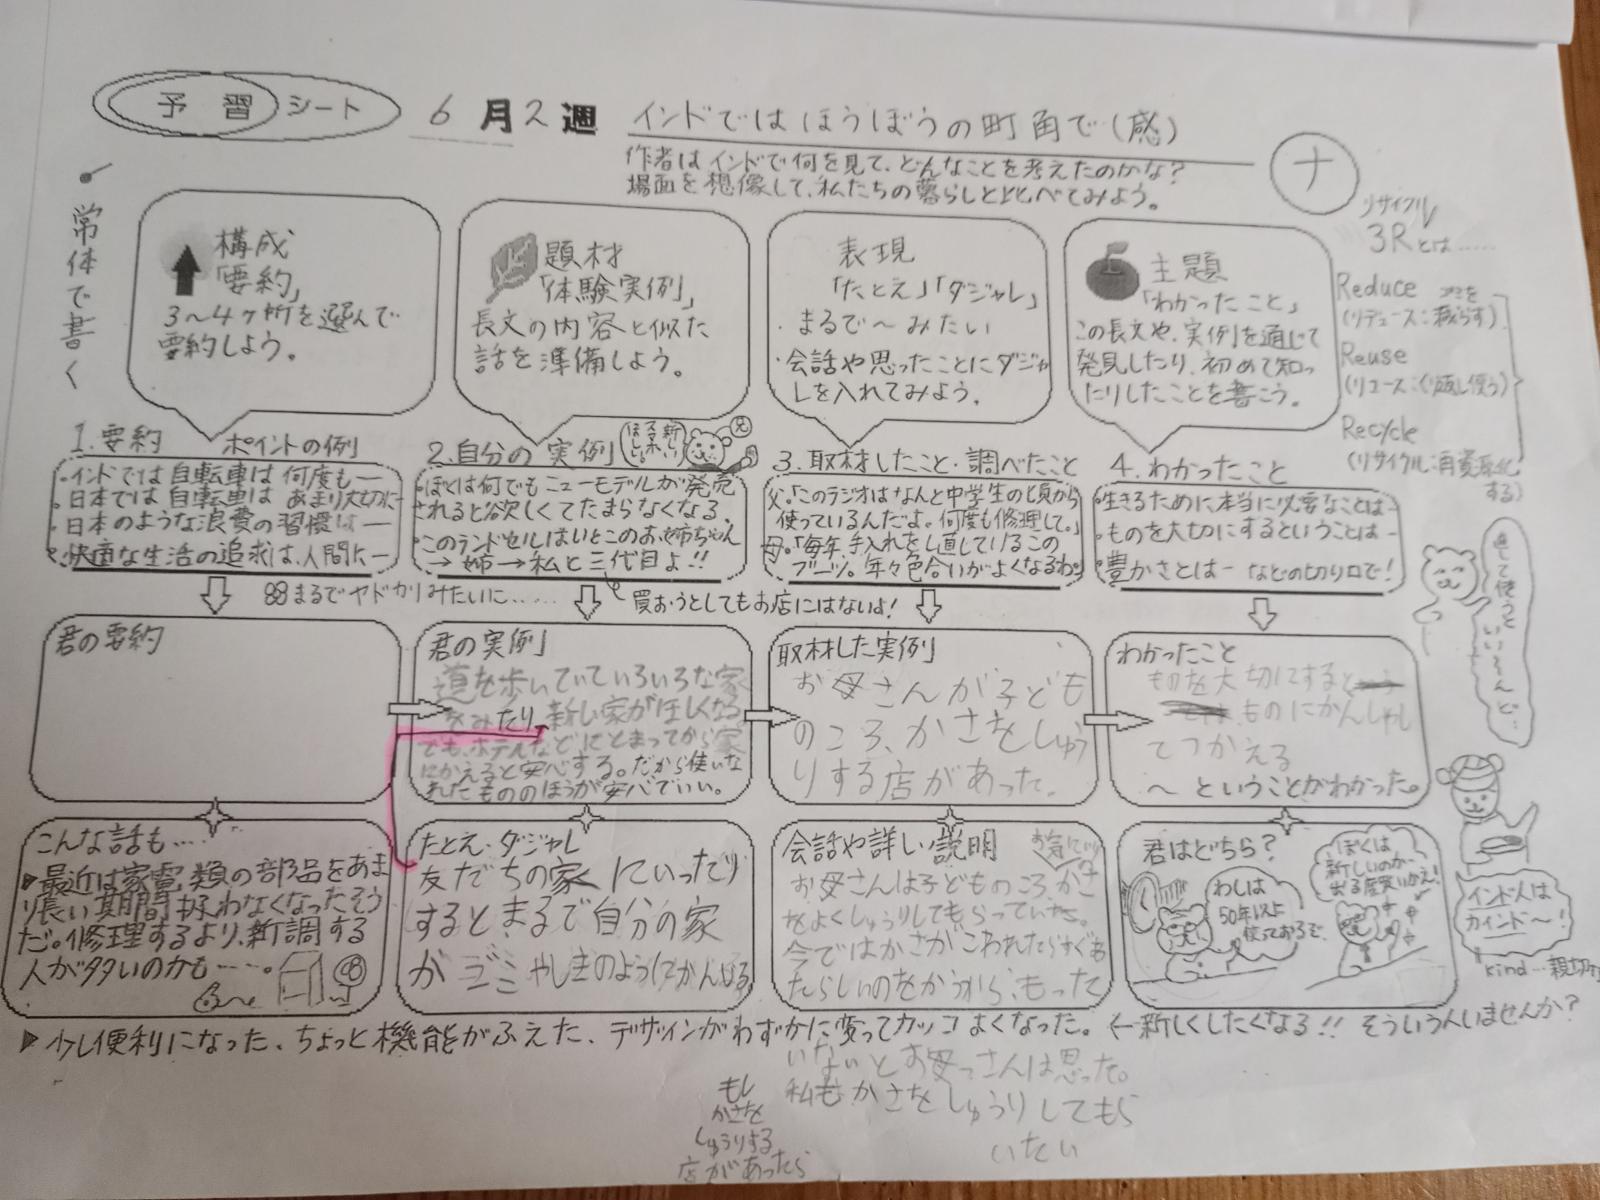 予習シート
6月2週
インドではほうぼうの町角で(感)
ナ
作者はインドで何を見て、どんなことを考えたのかな?
場面を想像して、私たちの暮らしと比べてみよう。
常体で書く
構成
「要約」
3～4ヶ所を選んで
要約しよう。
題材
「体験実例」
長文の内容と似た
話を準備しよう。
表現
「たとえ」「ダジャレ」
・まるで～みたい
・会話や思ったことにダジャ
レを入れてみよう。
主題
「わかったこと」
この長文や、実例を通じて
発見したり、初めて知っ
たりしたことを書こう。
リサイクル
3Rとは……
Reduce ゴミを
(リデュース:減らす)
Reuse
(リユース:くり返し使う)
Recycle
(リサイクル:再資源化
する)
1.要約 ポイントの例
・インドでは自転車は何度も―
・日本では自転車はあまり大切に
・日本のような浪費の習慣は―
・快適な生活の追求は、人間に―
2.自分の実例
新しい
スマホ
ほしい。
兄
・ぼくは何でもニューモデルが発売
されると欲しくてたまらなくなる。
・このランドセルはいとこのお姉ちゃん
→姉→私と三代目よ!!
3.取材したこと・調べたこと
父.「このラジオはなんと中学生の頃から
使っているんだよ。何度も修理して。」
母.「毎年、手入れをし直しているこの
ブーツ。年々色合いがよくなるわ。
4.わかったこと
・生きるために本当に必要なことは―
・ものを大切にするということは―
・豊かさとは― などの切り口で!
まるでヤドカリみたいに……
買おうとしてもお店にはないよ!
君の要約
君の実例
道を歩いていていろいろな家
をみたり、新しい家がほしくなる。
でも、ホテルなどにとまってから家
にかえると安心する。だから使いな
れたもののほうが安心でいい。
取材した実例
お母さんが子ども
のころ、かさをしゅう
りする店があった。
わかったこと
ものを大切にすると
ものにかんしゃし
てつかえる
～ということがわかった。
こんな話も…
▶最近は家電類の部品をあま
り長い期間扱わなくなったそう
だ。修理するより、新調する
人が多いのかも……。
たとえ・ダジャレ
友だちの家にいったり
するとまるで自分の家
がゴミやしきのようにかんじる
会話や詳しい説明
お気に入り
お母さんは子どものころ、かさ
をよくしゅうりしてもらっていた。
今ではかさがこわれたらすぐあ
たらしいのをかうから、もったい
ないとお母さんは思った。
私もかさをしゅうりしてもら
いたい
もし
かさを
しゅうりする
店があったら
君はどちら?
わしは
50年以上
使っておるぞ。
ぼくは
新しいのが
出る度買いかえ!
直して使うと
いいそんど…
インド人は
カインド～!
kind…親切な
▶少し便利になった、ちょっと機能がふえた、デザインがわずかに変ってカッコよくなった。←新しくしたくなる!! そういう人いませんか?